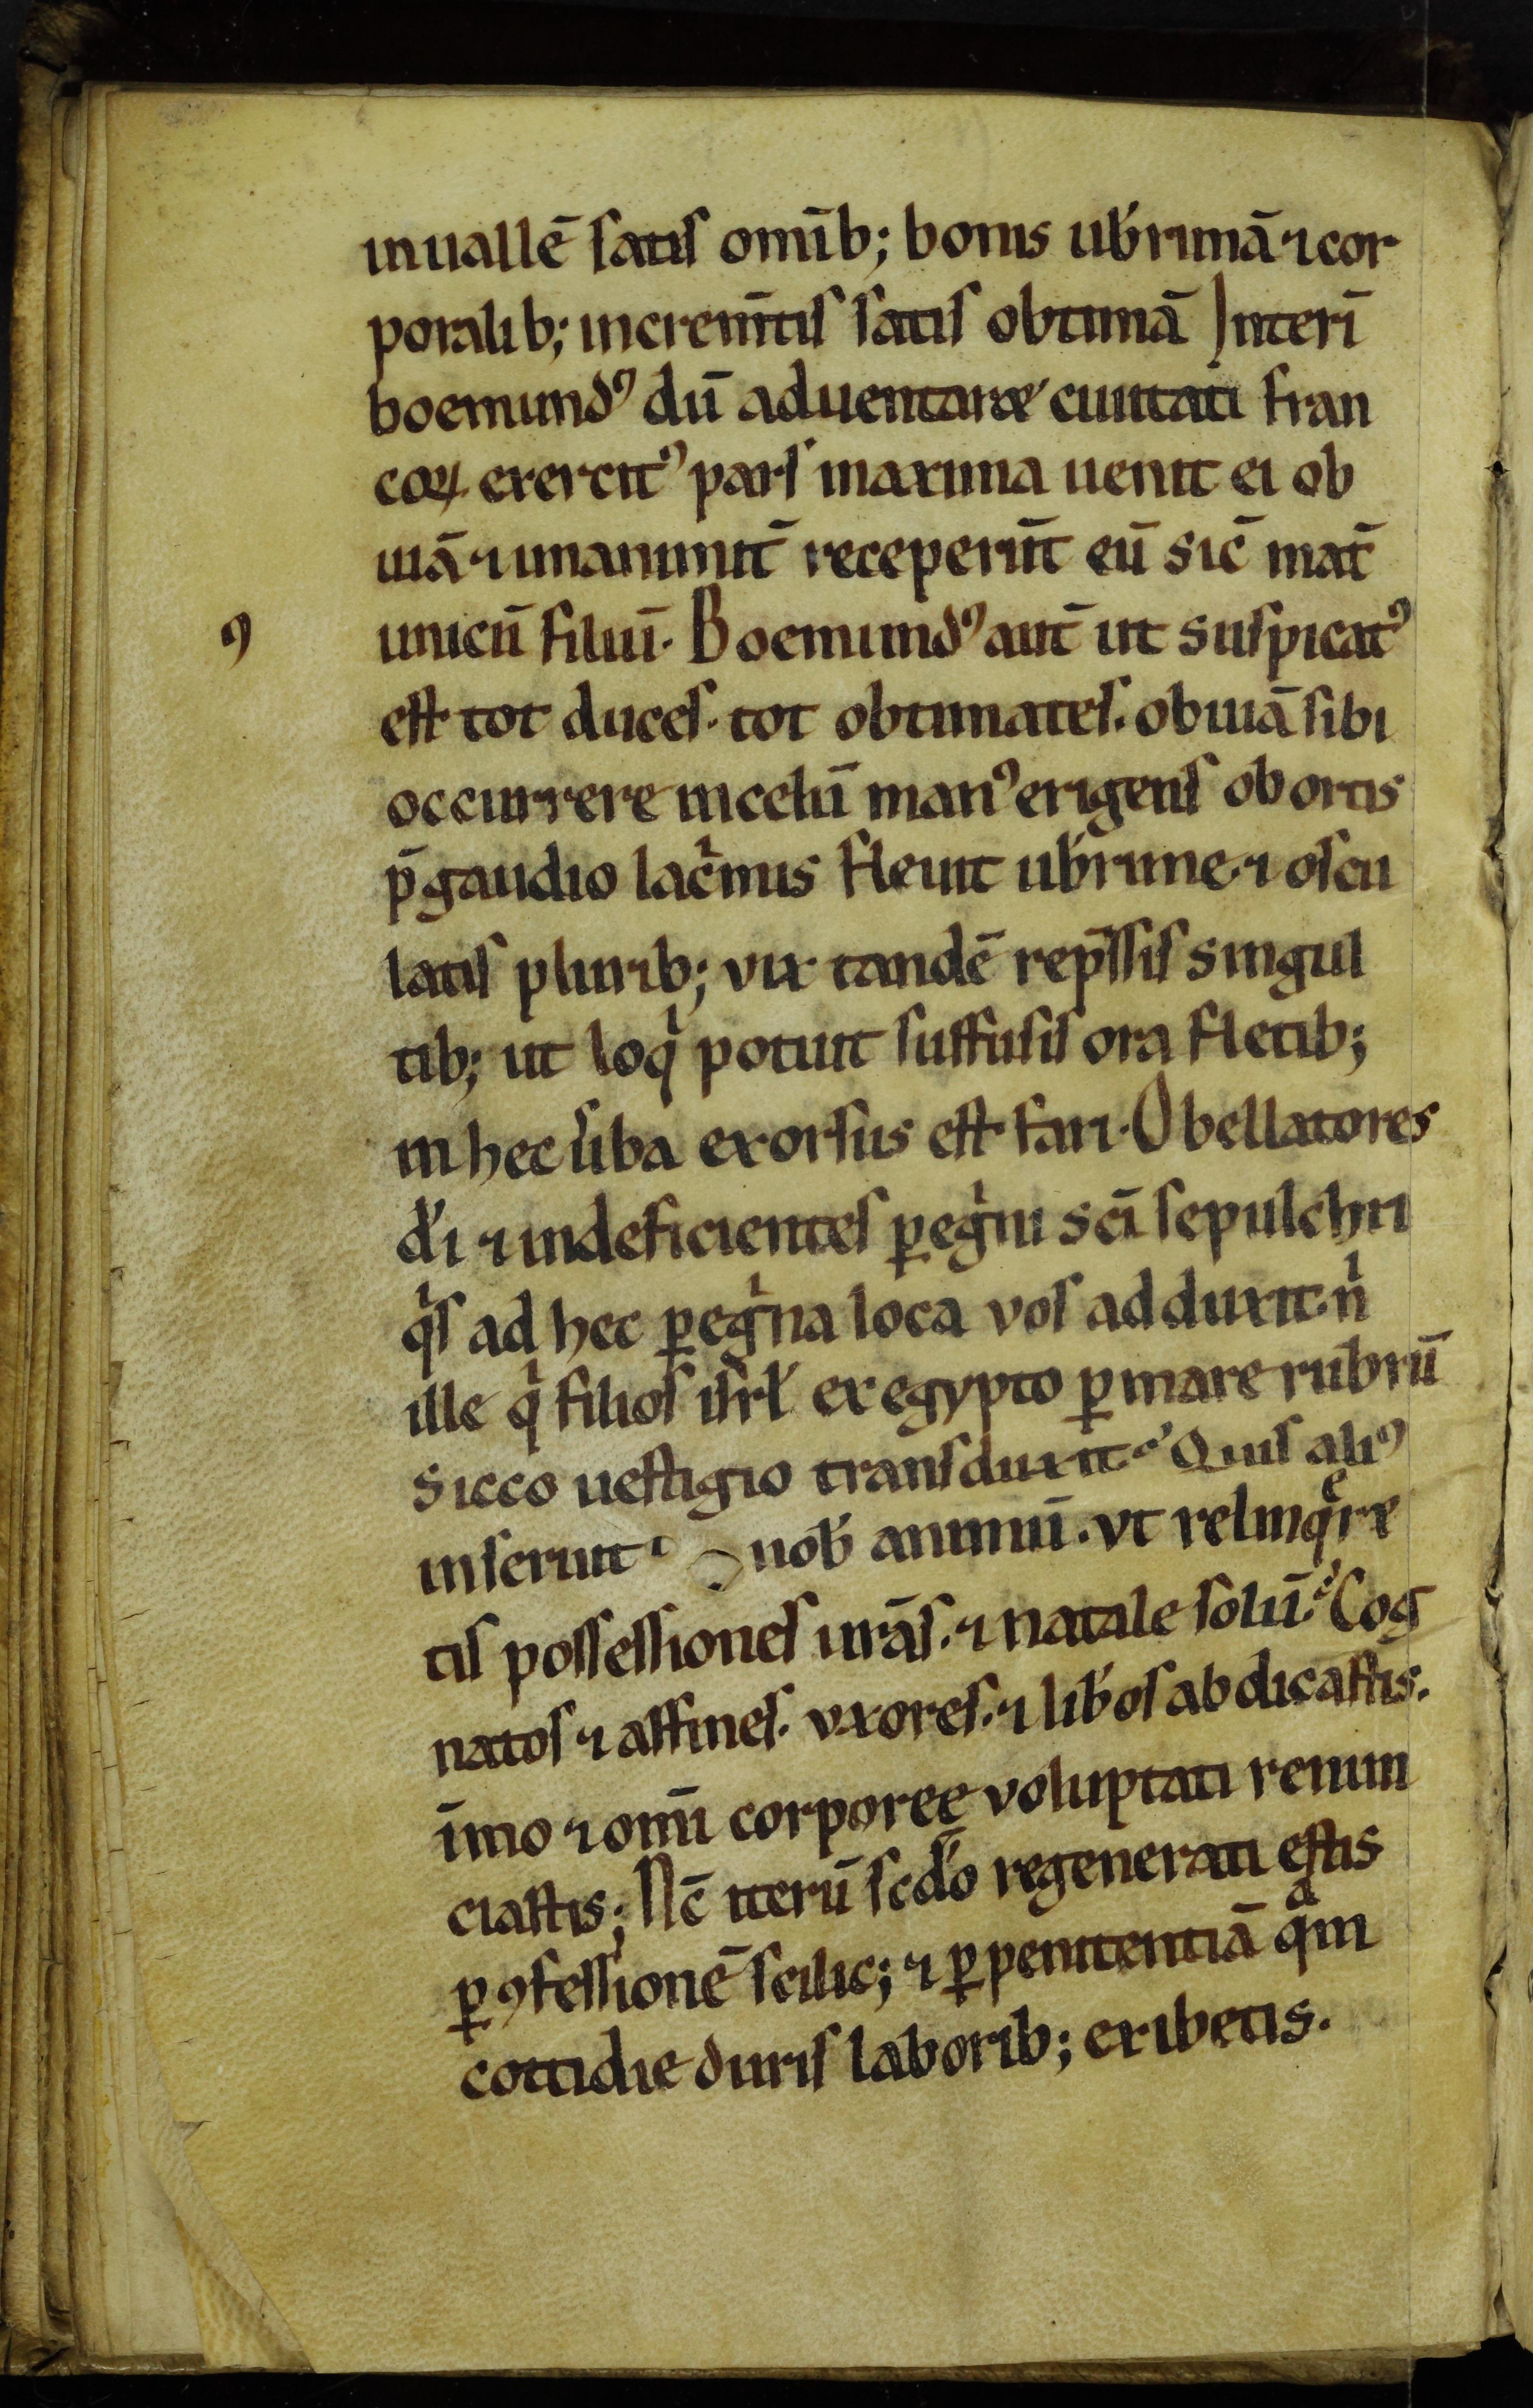 inuallē satis om̄ib; bonis ub̾rimā ⁊ cor
poralib; increm̄tis satis obtimā Interī
boemundꝰ dū aduentaræ cuntati fran
coꝝ exercitꝰ pars maxima uenit ei ob
uiā ⁊ unanimit̄ receperūt eū sic̄ mat̄
ꝰ unicū filiū. Boemundꝰ aut̄ ut suspicatꝰ
est tot duces. tot obtimates. obuiā sibi
occurrere incelū manꝰ erigens obortis
p̄ gaudio lac̾mis fleuit ub̾rime. ⁊ oscu
latis plurib; vix tandē rep̄ssis singul
tib; ut loqͥ potuit suffusis ora fletib;
in hec u̾ba exorsus est fari. O bellatores
d̾i ⁊ indeficientes ꝑegͥni sc̄i sepulchri
qͥs ad hec ꝑegͥna loca vos adduxit. nͥ
ille qͥ filios isr̄l ex egypto ꝑ mare rubrū
sicco uestigio transduxit? Quis aliꝰ
inseruit nob̾ animū. vt relinqͤre
tis possessiones ur̄as. ⁊ natale solū? Cog
natos ⁊ affines. vxores. ⁊ lib̾os abdicastis.
īmo ⁊ om̄i corporeę voluptati renun
ciastis; Nc̄ iterū sc̄do regenerati estis
ꝑ ꝯfessionē scilic; ⁊ ꝑ penitentiā qͣm
cottidie duris laborib; exibetis.